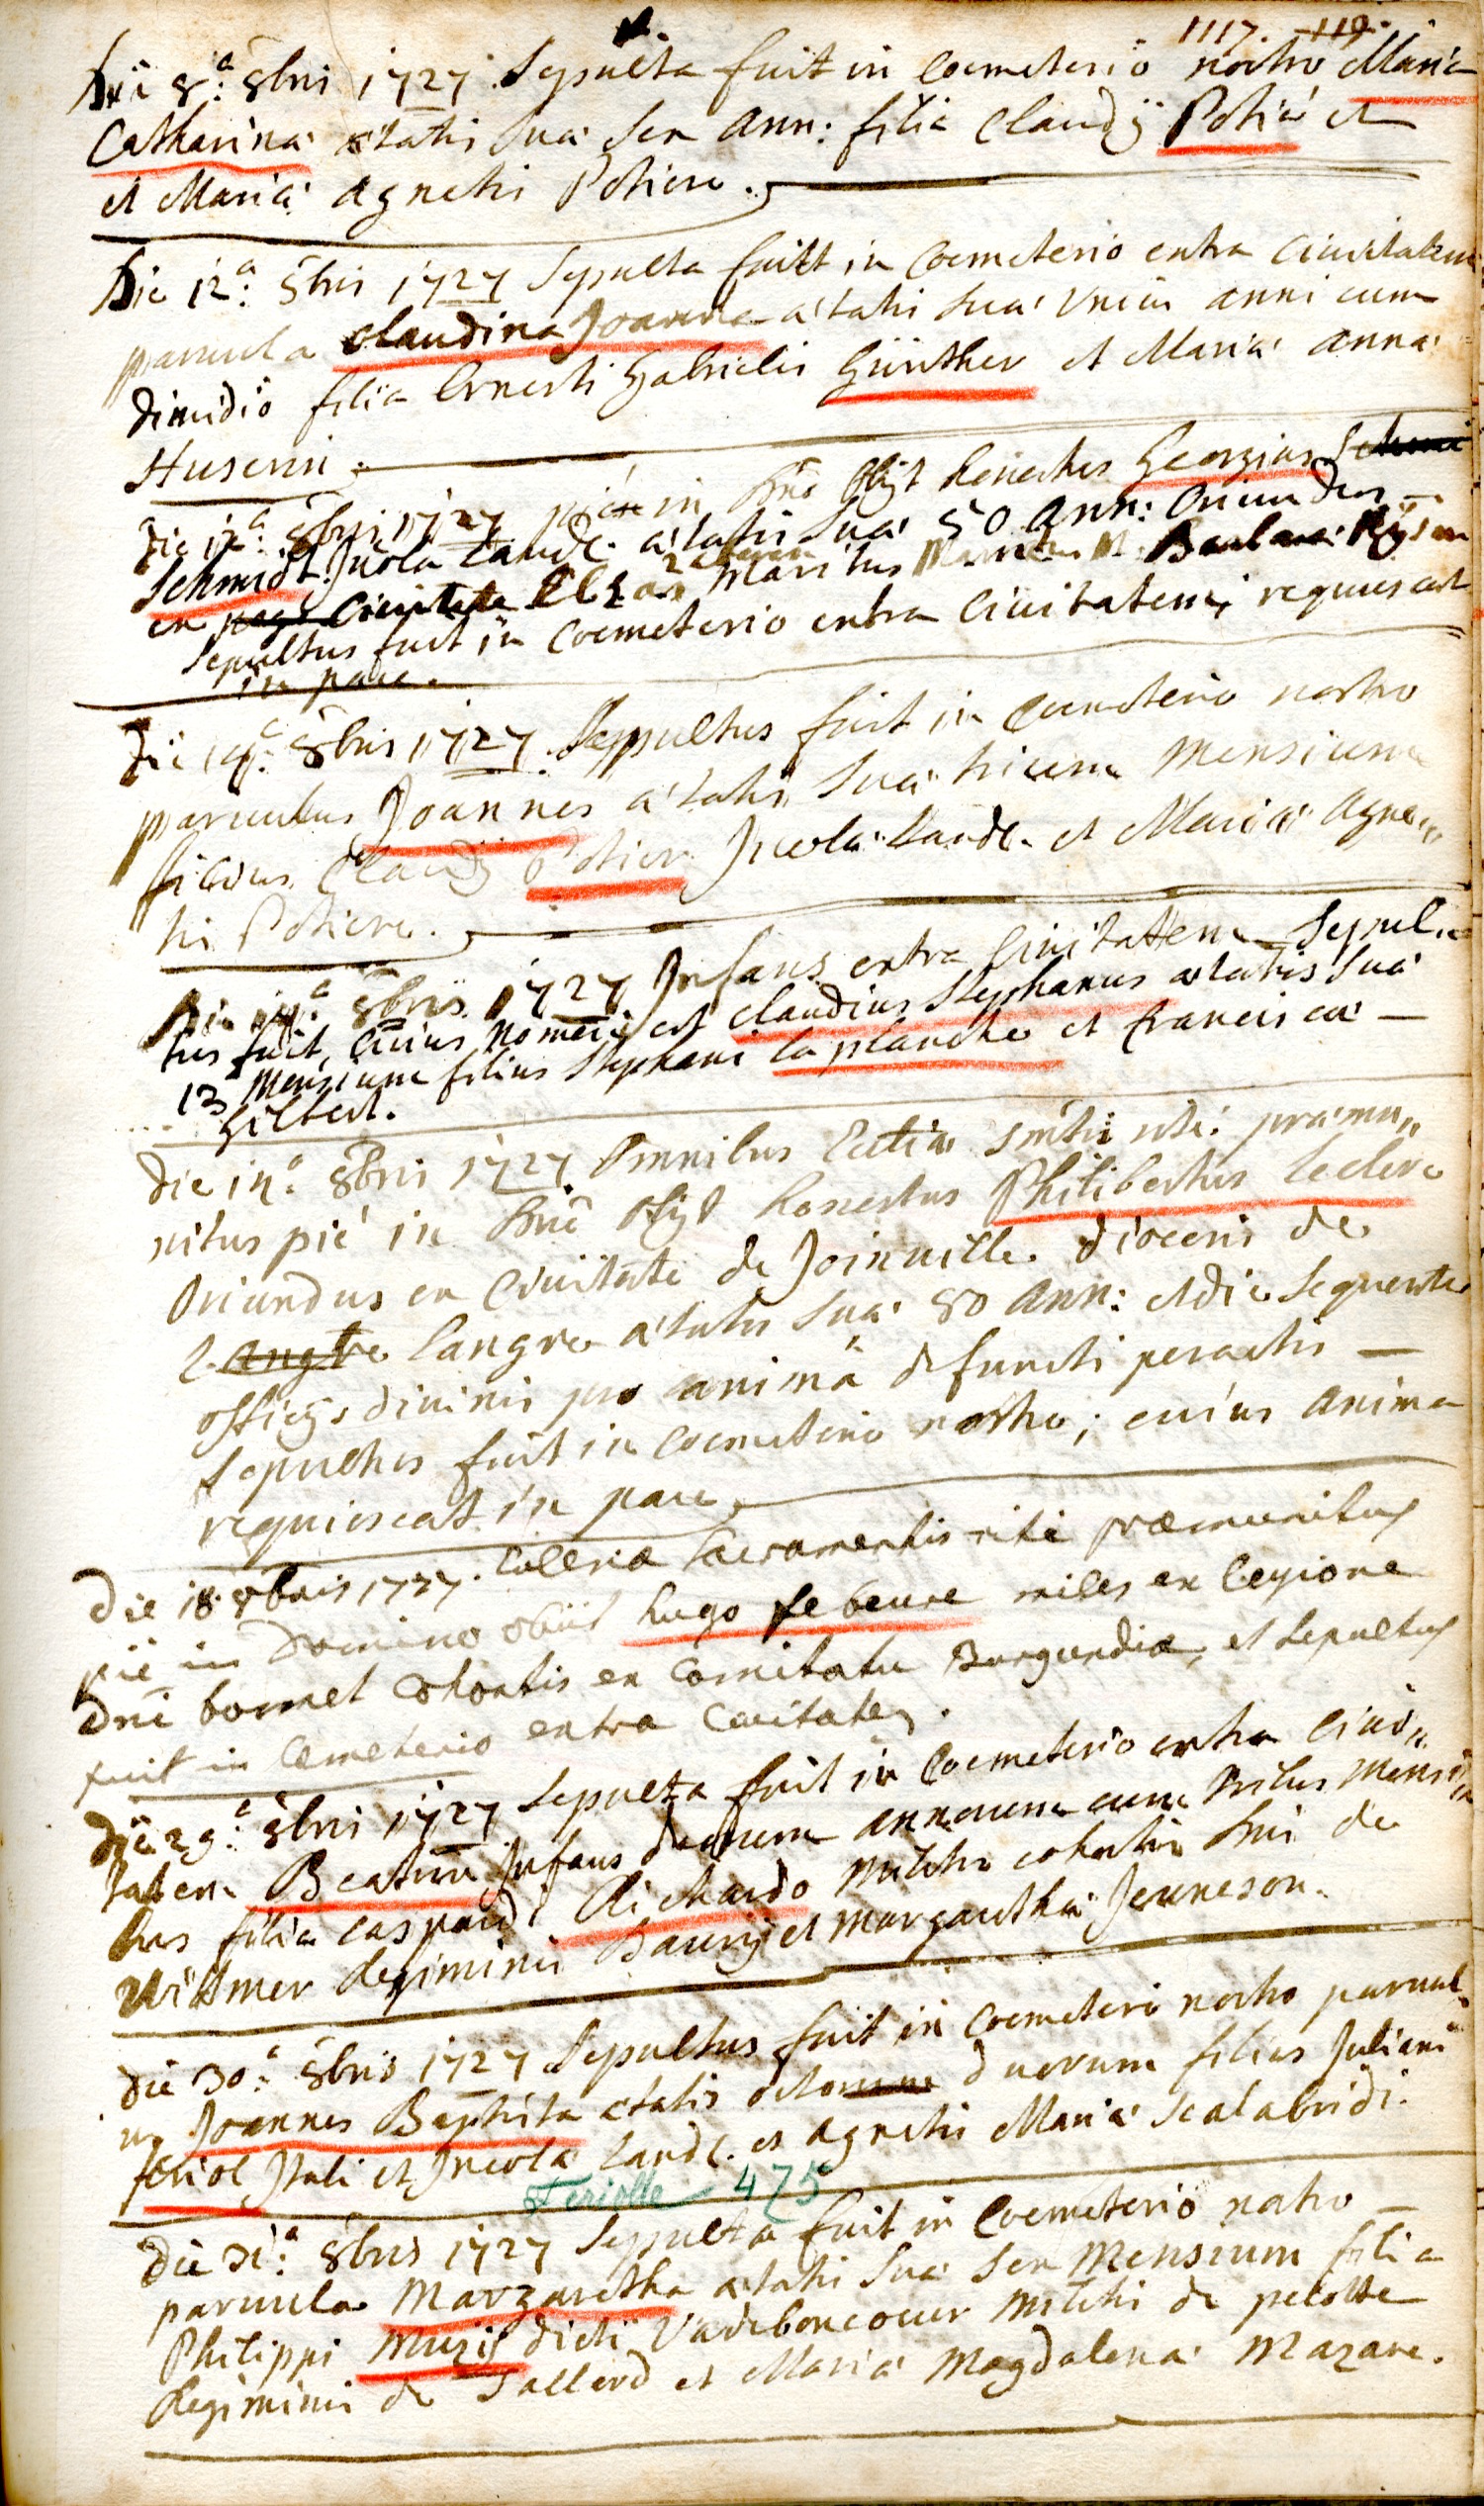 1117. 119.
Die 8.a 8bris 1727 Sepulta fuit in Coemeterio nostro Maria
Catharina ætatis suæ sex ann: filia Claudÿ Potié et
et Mariæ Agnetis Potiere.
Die 12.a 8bris 1727 Sepulta fuitt in Coemeterio extra Civitatem
parvula Claudina Joanna ætatis suæ unius anni cum
dimidio filia Ernesti Gabrielis Günther et Mariæ Annæ
Huserin.
Die 12.a 8bris 1727 pie in Dno obÿt honestus Georgius
Schmidt Incola Landt. ætatis suæ 50 Ann: oriundus
ex Civitate Elsas Maritus Barbaræ
Sepultus fuit in Coemeterio extra Civitatem, requiescat
in pace.
Die 14.a 8bris 1727. Seppultus fuit in Coemeterio nostro
parvulus Joannes ætatis suæ trium Mensium
filius Claudÿ Potier Incolæ Landt. et Mariæ Agne„
tis Potiere.
Die 8bris 1727 Infans extra Civitattem Sepul„
tus fuit, Cuius nomen est Claudius Stephanus ætatis suæ
13 Mensium filius Stephani la planche et Franciscæ
Gilbert.
Die 8bris 1727 Omnibus Ecclæ Smtis rité præmu„
nitus pié in Dnô obÿt honestus Philibertus leclerc
Oriundus ex Civitate de Joinville diocesis de
Langre ætatis suæ 50 Ann: et die sequente
offiiÿs divinis pro animâ defuncti peractis
sepultus fuit in coemeterio nostro; cuius anima
requiescat in pace.
Die 18. 8bris 1727. Eccleriæ Sacramentis rite præmunitus
pie in Domino obiit hugo febeure miles ex legione
Dni bonnet Cohortis ex Comitatu Burgundiæ, et Sepultus
fuit in Cemeterio extra Civitatem.
Die 29.a 8bris 1727 Sepulta fuit in Coemeterio extra Civi„
tatem Infans annorum cum tribus Mensi
bus filia caspardi Richardo Militis cohortis Dni de
Wittmer Regiminis et Margarethæ Jenneson.
Die 30.a 8bris 1727 Sepultus fuit in Coemeteri nostro parvul„
us Joannes Baptista ætatis duorum filius Juliani
feriol Itali et Incolæ Landt. et Agnetis Mariæ Scalabridi.
Feriolle 475
Die 31.a 8bris 1727 Sepulta fuit in Coemeterio nostro
parvula Margaretha ætatis suæ sex Mensium filia
Philippi Muzis dicti Vadeboncoeur Militis de pelotte
Regiminis de Tallerd et Mariæ Magdalenæ Mazare.